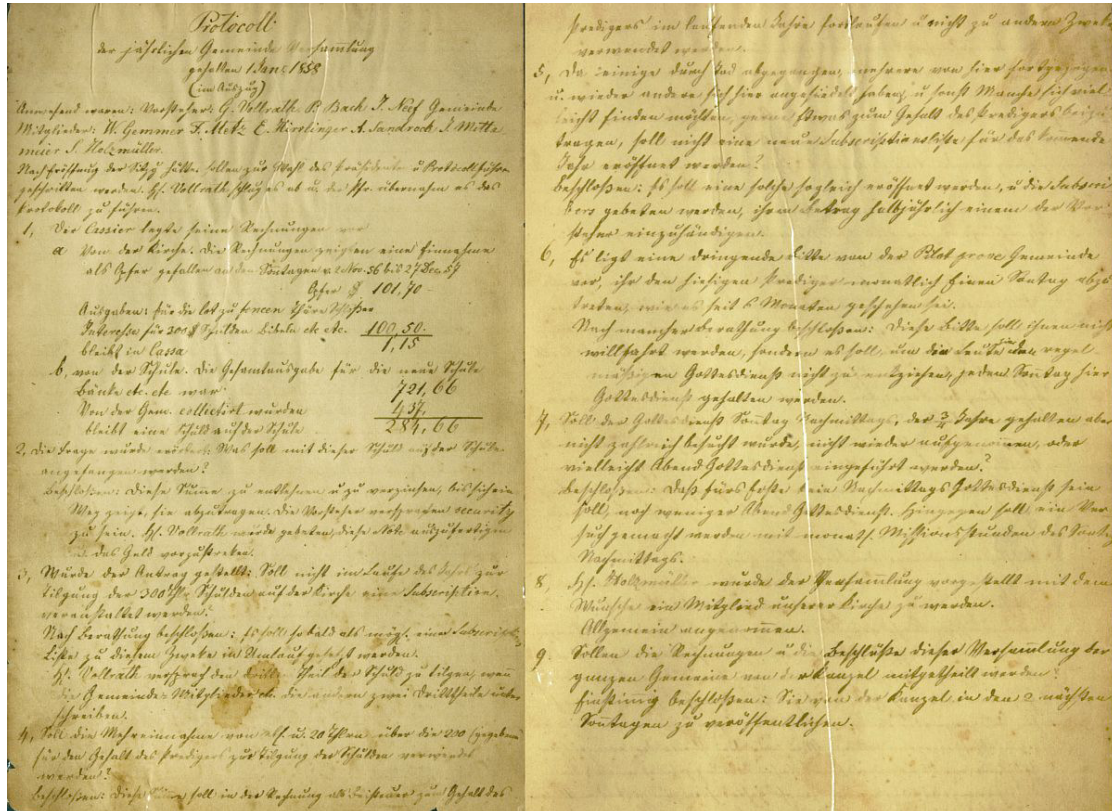 Protocoll
der jährlichen Gemeinde Versammlung
gehalten 1 Jan. 1858
(im Auszug)
Anwesend waren: Vorsteher: G. Vollrath P. Bach J. Neef Gemeinde
Mitglieder: W. Gemmer F. Metz E. Hirrlinger A. Sandrock J. Motte
meier S. Holzmüller.
Nach Eröffnung der Sitzg hätte sollen zur Wahl des Präsidenten u Protocollführer
geschritten werden. H. Vollrath schlug es ab u. der Pfr. übernahm es das
Protokoll zu führen.
1, Der Cassier legte seine Rechnungen vor
a Von der Kirche. Die Rechnungen zeigten eine Einnahme
als Opfer gefallen an den Sontagen v. 2 Nov. 56 bis 27 Dec. 57
Opfer $ 101,70
Ausgaben: für die lot zu fencen Thüre Schlößer
Interessen für 300 $ Schulden Bibeln etc etc. 100,50.
bleibt in Cassa 1,15
b, von der Schule. Die Gesamtausgabe für die neue Schule
Bänke etc. etc war 721,66
Von der Gem. collectirt wurden 437,
bleibt eine Schuld auf der Schule 284,66
2, die Frage wurde erörtert: Was soll mit dieser Schuld auf der Schule
angefangen werden?
Beschloßen: Diese Summe zu entlehnen u zu verzinsen, bis sich ein
Weg zeigt, sie abzutragen. Die Vorsteher versprachen security
zu sein. H. Vollrath wurde gebeten, diese Note auszufertigen
u. das Geld vorzustrecken.
3, Wurde der Antrag gestellt: Soll nicht im Laufe des Jahres zur
Tilgung der 300 Thlr Schulden auf der Kirche eine Subscription
veranstaltet werden?
Nach Berathung beschloßen: Es soll sobald als mögl. eine Subscript.
Liste zu diesem Zwecke in Umlauf gesetzt werden.
H. Vollrath versprach den dritten Theil der Schuld zu tilgen, wenn
die Gemeinde Mitglieder etc. die andern zwei Drittheile unter
schreiben.
4, Soll die Mehreinnahme von elf u. 20 Thlrn über die 200 (gegeben
für den Gehalt des Predigers zur Tilgung der Schulden verwendet
werden?
Beschloßen: Diese Summe soll in der Rechnung als Beisteuer zum Gehalt des
Predigers im laufenden Jahre fortlaufen u nicht zu andern Zwecken
verwendet werden.
5, Da einige durch Tod abgegangen, mehrere von hier fortgezogen
u. wieder andere sich hier angesiedelt haben, u sonst Manche sich viel-
leicht finden möchten, gerne Etwas zum Gehalt des Predigers beizu
tragen, soll nicht eine neue Subscriptionsliste für das kommende
Jahr eröffnet werden?
Beschloßen: Es soll eine solche sogleich eröffnet werden, u die Subscri
bers gebeten werden, ihren Betrag halbjährlich einem der Vor-
steher einzuhändigen.
6, Es ligt eine dringende Bitte von der Pilot grove Gemeinde
vor, ihr den hiesigen Prediger monatlich Einen Sontag abzu
treten, wie es seit 6 Monaten geschehen sei.
Nach mancher Berathung beschloßen: Diese Bitte soll ihnen nicht
willfahrt werden, sondern es soll, um die Leute dem regel
mäßigen Gottesdienst nicht zu entziehen, jeden Sontag hier
Gottesdienst gehalten werden.
7, Soll der Gottesdienst Sontag Nachmittags, der 3/4 Jahre gehalten aber
nicht zahlreich besucht wurde, nicht wieder aufgenommen, oder
vielleicht Abend Gottesdienst eingeführt werden?
Beschloßen: Daß fürs Erste kein Nachmittags Gottesdienst sein
soll, noch weniger Abend Gottesdienst. Hingegen soll ein Ver
such gemacht werden mit monatl. Missionsstunden des Sontag
Nachmittags.
8, H. Holzmüller wurde der Versamlung vorgestellt mit dem
Wunsche ein Mitglied unserer Kirche zu werden.
Allgemein angenommen.
9. Sollen die Rechnungen u die Beschlüße dieser Versamlung der
ganzen Gemeine von der Kanzel mitgetheilt werden?
Einstimig beschloßen: Sie von der Kanzel in den 2 nächsten
Sontagen zu veröffentlichen.